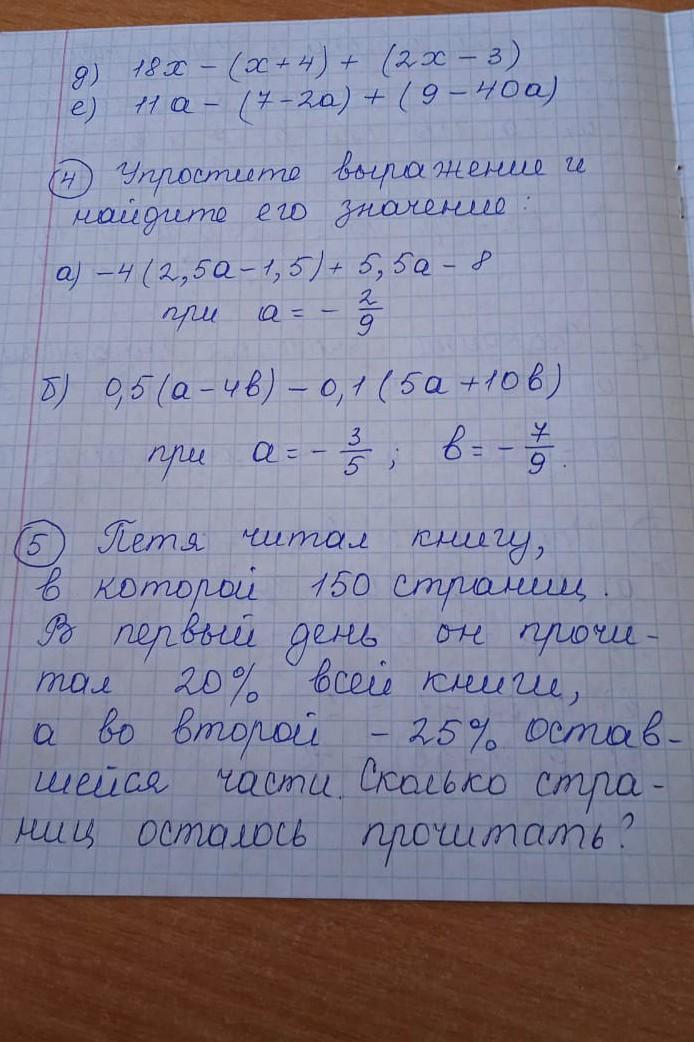 д) 18x - (x+4) + (2x - 3)
е) 11a - (7-2a) + (9-40a)
4 Упростите выражение и
найдите его значение:
а) -4(2,5a-1,5)+5,5a-8
при a = - 2/9
б) 0,5(a-4b) - 0,1(5a+10b)
при a = - 3/5; b = - 7/9.
5 Петя читал книгу,
в которой 150 страниц.
В первый день он прочи-
тал 20% всей книги,
а во второй - 25% остав-
шейся части. Сколько стра-
ниц осталось прочитать?